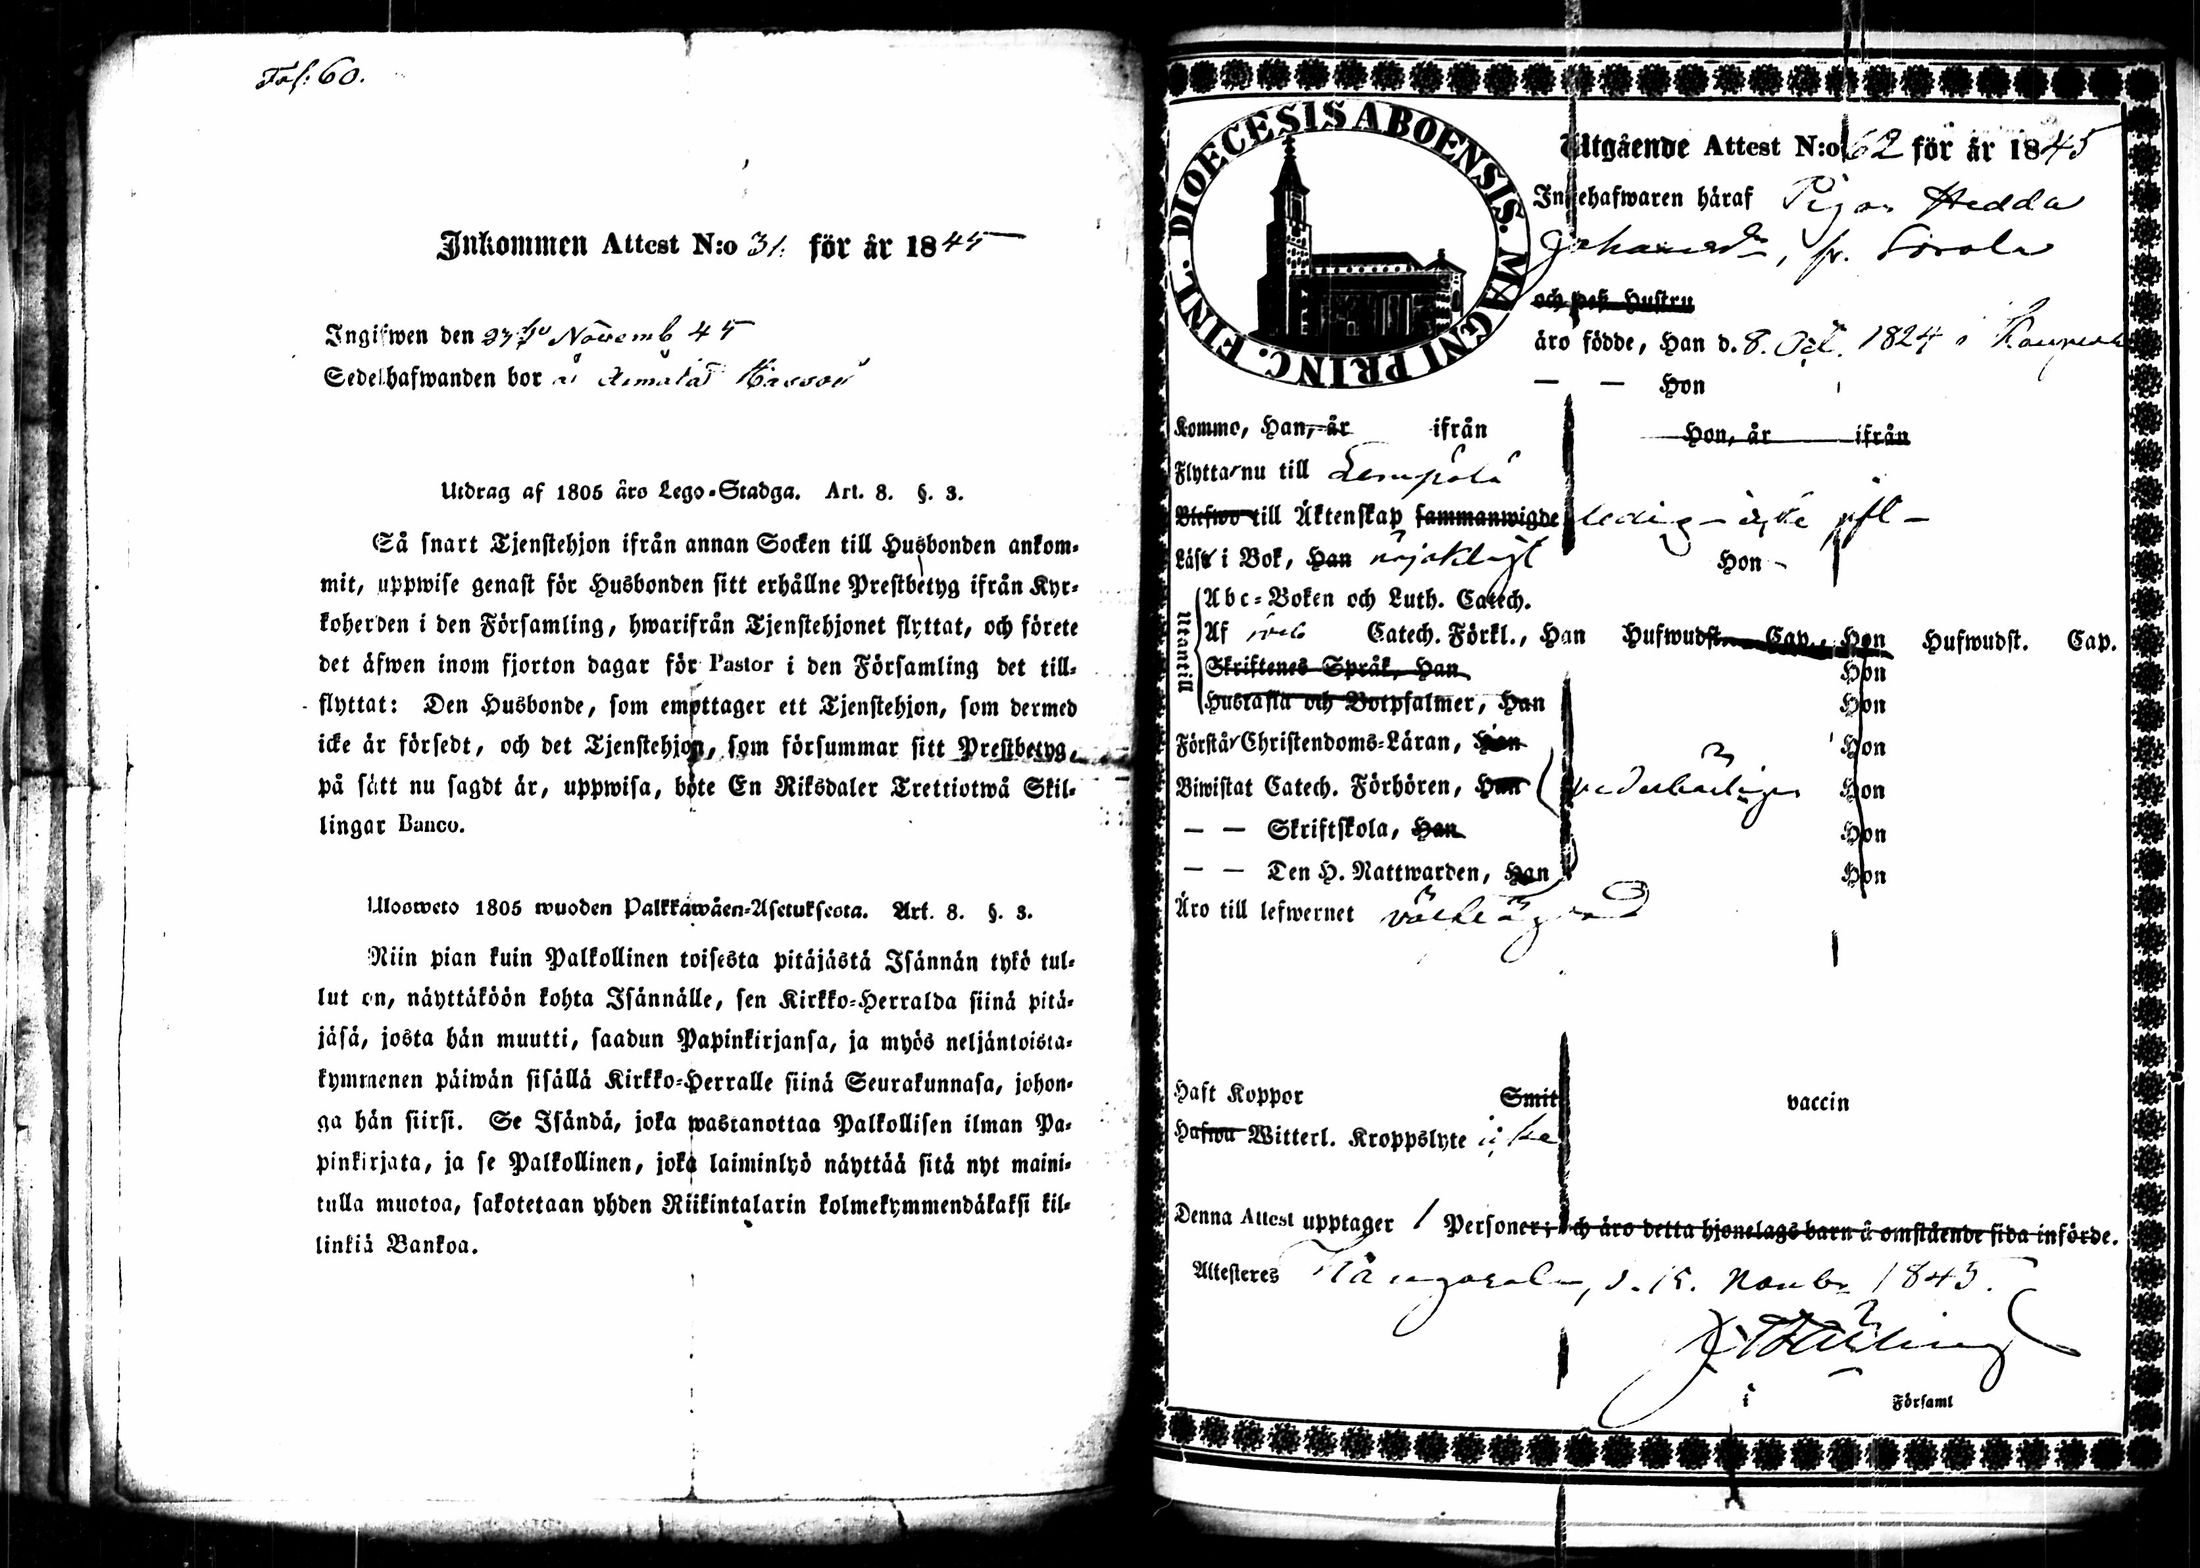 Fol: 60.
Inkommen Attest N:o 31. för år 1845
Ingifwen den 23 Novemb 45
Sedelhafwanden bor å
Utdrag af 1805 års Lego-Stadga. Art. 8. §. 3.
Så snart Tjenstehjon ifrån annan Socken till Husbonden ankom-
mit, uppwise genast för Husbonden sitt erhållne Prestbetyg ifrån Kyr-
koherden i den Församling, hwarifrån Tjenstehjonet flyttat, och förete
det äfwen inom fjorton dagar för Pastor i den Församling det till-
flyttat: Den Husbonde, som emottager ett Tjenstehjon, som dermed
icke är försedt, och det Tjenstehjon, som försummar sitt Prestbetyg,
på sätt nu sagdt är, uppwisa, böte En Riksdaler Trettiotwå Skil-
lingar Banco.
Ulosweto 1805 wuoden Palkkawäen-Asetuksesta. Art. 8. §. 3.
Niin pian kuin Palkollinen toisesta pitäjästä Isännän tykö tul-
lut on, näyttäköön kohta Isännälle, sen Kirkko-Herralda siinä pitä-
jäsä, josta hän muutti, saadun Papinkirjansa, ja myös neljäntoista-
kymmenen päiwän sisällä Kirkko-Herralle siinä Seurakunnasa, johon-
ga hän siirsi. Se Isändä, joka wastanottaa Palkollisen ilman Pa-
pinkirjata, ja se Palkollinen, joka laiminlyö näyttää sitä nyt maini-
tulla muotoa, sakotetaan yhden Riikintalarin kolmekymmendäkaksi kil-
linkiä Bankoa.
DIOECESIS ABOENSIS. MAGNI PRINC. FINL.
Utgående Attest N:o 62 för år 1845
Innehafwaren häraf Pigan Hedda
Johansdr, fr. Sorola
och dess Hustru
äro födde, Han d. 8. Oct. 1824 i
— — Hon
Kommo, Han, år ifrån Hon, år ifrån
Flytta nu till Lempälä
Blefwo till Äktenskap sammanwigde ledig
Läsa i Bok, Han nöjaktigt Hon
Utantill
Abc-Boken och Luth. Catech.
Af Catech. Förkl., Han Hufwudst. Cap. Hon Hufwudst. Cap.
Skriftenes Språk, Han Hon
Hustafla och Botpsalmer, Han Hon
Förstå Christendoms-Läran, Han Hon
Biwistat Catech. Förhören, Han vederbörligen Hon
— — Skriftskola, Han Hon
— — Den H. Nattwarden, Han Hon
Äro till lefwernet välfrägdad
Haft Koppor Smit vaccin
Hafwa Witterl. Kroppslyte icke
Denna Attest upptager 1 Personer; och äro detta hjonelags barn å omstående sida införde.
Attesteres Kångasala, d. 15. Novbr 1845.
i Församl